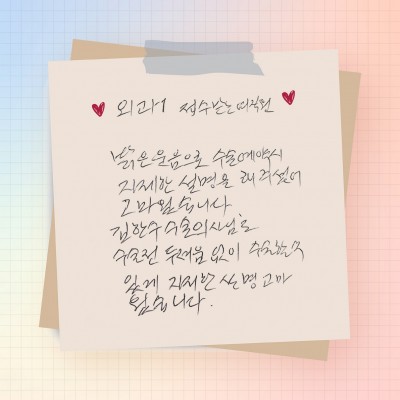 외과1 접수받는 여직원
밝은 웃음으로 수술예약시
자세한 설명을 해주셨어
고마웠습니다
김한수 수술의사님도
수술전 두려움 없이 수술할수
있게 자세한 설명 고마
웠습니다.